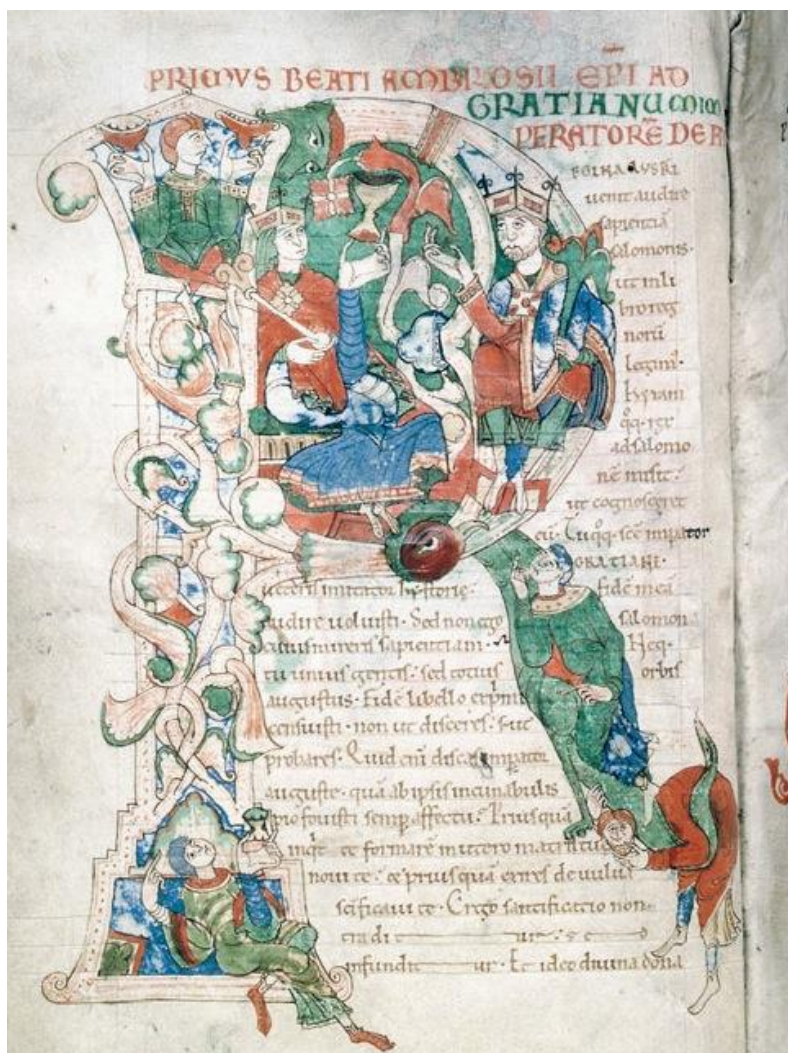 PRIMVS BEATI AMBROSII EPI AD
GRATIANU IM
PERATORĒ DE
EGINA AVSTRI
uenit audire
sapientiā
salomonis.
ut in li
bro reg
norū
legim.
hyram
qq. igr
ad salomo
nē misit.
ut cognosceret
eū. Tu qq. scē impator
GRATIANE.
ueteris imitator hystorie. fidē meā
audire uoluisti. Sed non ego salomon
cuius mireris sapientiam. Neq.
tu unius gentis. sed totius orbis
augustus. Fidē libello exprimi
censuisti. non ut disceres. sʒ ut
probares. Quid eni discas impator
auguste. quā ab ipsis incunabulis
pio fouisti semp affectu. Priusquā
inqt te formarē in utero matris tue
noui te. et priusquā exires de uulua
scificaui te. Ergo sanctificatio non
tradit ur. sʒ
infundit ur. Et ideo diuina dona